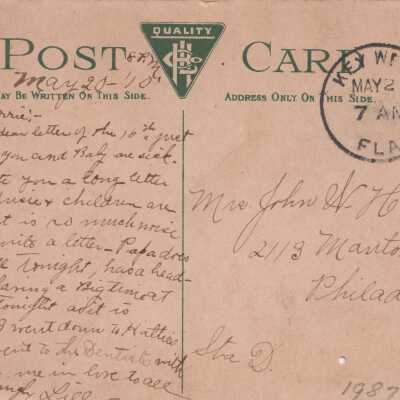 QUALITY
POST CARD
May 20-'10
MAY BE WRITTEN ON THIS SIDE.
ADDRESS ONLY ON THIS SIDE.
KEY WE
MAY 2
7 AM
FLA
dear letter of the 16th just
you and Baby are sick.
te you a long letter
& children are
t is so much noise
write a letter - Papa does
tonight, has a head-
having a Big time at
tonight as it is
I went down to Kattie's
went to the Dentists with
me in love to all
Lill
Mrs. John W. H
2113 Manto
Philad
Sta D.
1987